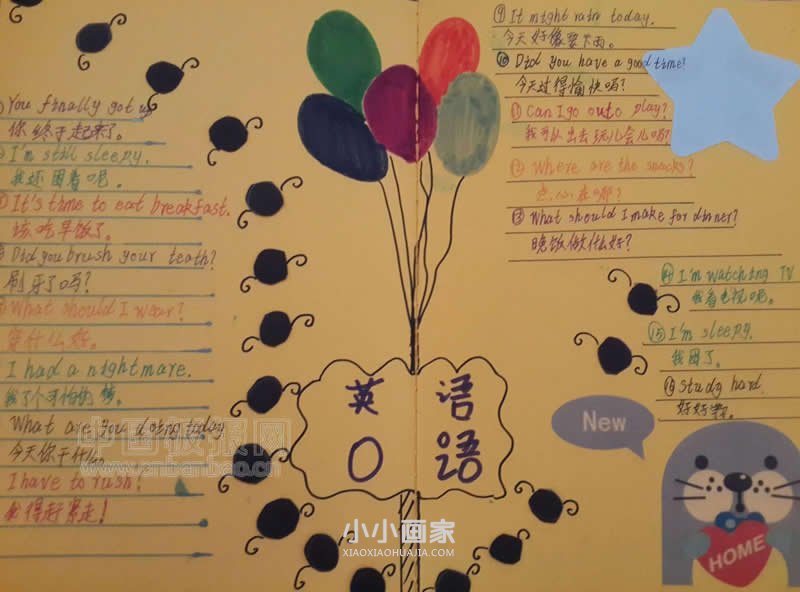 You finally got up
你终于起来了。
I'm still sleepy.
我还困着呢。
It's time to eat breakfast.
该吃早饭了。
Did you brush your teath?
刷牙了吗?
What should I wear?
穿什么好。
I had a nightmare.
我了个可怕的梦。
What are you doing today
今天你干什么
I have to rush!
我得赶紧走!
英语
口语
⑨ It might rain today.
今天好像要下雨。
⑩ Did you have a good time!
今天过得愉快吗?
⑪ Can I go outo play?
我可以出去玩儿会儿吗?
⑫ Where are the snacks?
点心在哪?
⑬ What should I make for dinner?
晚饭做什么好?
⑭ I'm watching TV
我看电视呢。
⑮ I'm sleepy.
我困了。
⑯ Study hard.
好好学。
New
HOME
中国板报网
cnbanbao.cn
小小画家
XIAOXIAOHUAJIA.COM